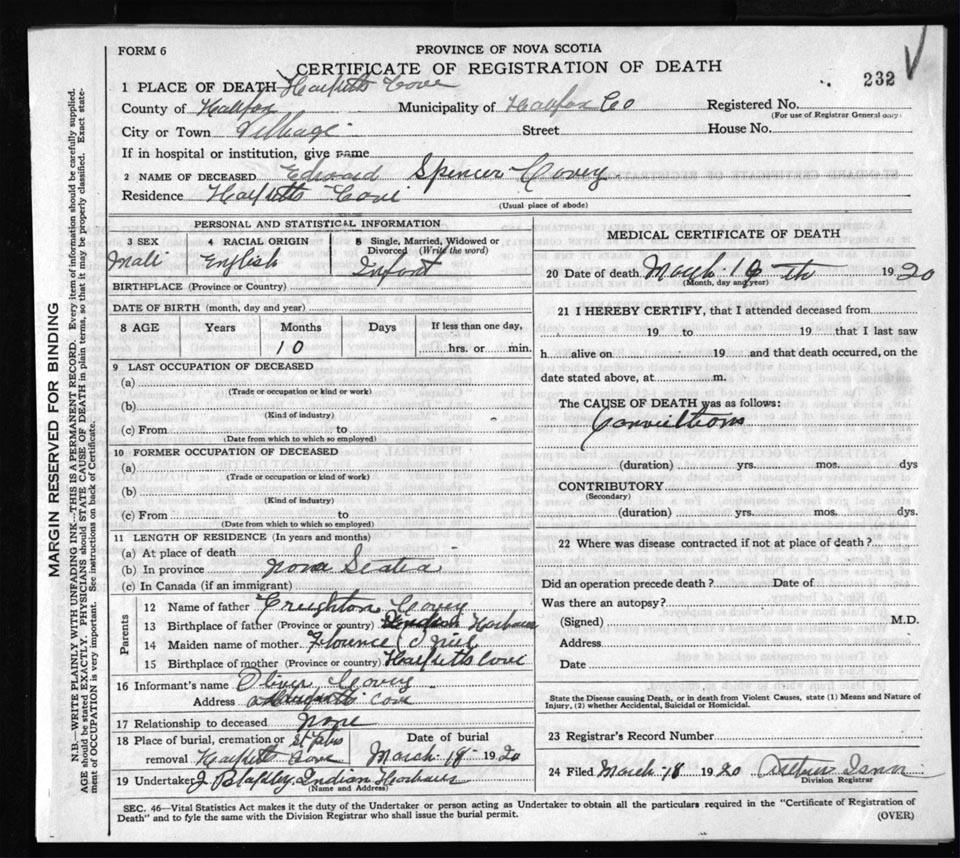 FORM 6
PROVINCE OF NOVA SCOTIA
CERTIFICATE OF REGISTRATION OF DEATH
232
1 PLACE OF DEATH Hacketts Cove
County of Halifax Municipality of Halifax Co Registered No.
(For use of Registrar General only)
City or Town Village Street House No.
If in hospital or institution, give name
2 NAME OF DECEASED Edward Spencer Covey
Residence Hacketts Cove
(Usual place of abode)
PERSONAL AND STATISTICAL INFORMATION
3 SEX 4 RACIAL ORIGIN 5 Single, Married, Widowed or Divorced (Write the word)
Male English Infant
BIRTHPLACE (Province or Country)
DATE OF BIRTH (month, day and year)
8 AGE Years Months Days If less than one day,
10 hrs. or min.
9 LAST OCCUPATION OF DECEASED
(a)
(Trade or occupation or kind or work)
(b)
(Kind of industry)
(c) From to
(Date from which to which so employed)
10 FORMER OCCUPATION OF DECEASED
(a)
(Trade or occupation or kind of work)
(b)
(Kind of industry)
(c) From to
(Date from which to which so employed)
11 LENGTH OF RESIDENCE (In years and months)
(a) At place of death
(b) In province Nova Scotia
(c) In Canada (if an immigrant)
Parents
12 Name of father Creighton Covey
13 Birthplace of father (Province or country) Indian Harbour
14 Maiden name of mother Florence
15 Birthplace of mother (Province or country) Hacketts Cove
16 Informant's name Oliver Covey
Address Cove
17 Relationship to deceased none
18 Place of burial, cremation or removal Hacketts Cove Date of burial March 18 1920
19 Undertaker J Indian Harbour
(Name and Address)
MEDICAL CERTIFICATE OF DEATH
20 Date of death March 16 th 1920
(Month, day and year)
21 I HEREBY CERTIFY, that I attended deceased from
19 to 19 that I last saw
h alive on 19 and that death occurred, on the
date stated above, at m.
The CAUSE OF DEATH was as follows:
Convultions
(duration) yrs. mos. dys
CONTRIBUTORY
(Secondary)
(duration) yrs. mos. dys.
22 Where was disease contracted if not at place of death?
Did an operation precede death? Date of
Was there an autopsy?
(Signed) M.D.
Address
Date
State the Disease causing Death, or in death from Violent Causes, state (1) Means and Nature of
Injury, (2) whether Accidental, Suicidal or Homicidal.
23 Registrar's Record Number
24 Filed March 18 1920
Division Registrar
SEC. 46—Vital Statistics Act makes it the duty of the Undertaker or person acting as Undertaker to obtain all the particulars required in the "Certificate of Registration of
Death" and to fyle the same with the Division Registrar who shall issue the burial permit.
(OVER)
MARGIN RESERVED FOR BINDING
N.B.—WRITE PLAINLY WITH UNFADING INK—THIS IS A PERMANENT RECORD. Every item of information should be carefully supplied.
AGE should be stated EXACTLY. PHYSICIANS should STATE CAUSE OF DEATH in plain terms, so that it may be properly classified. Exact state-
ment of OCCUPATION is very important. See instructions on back of Certificate.